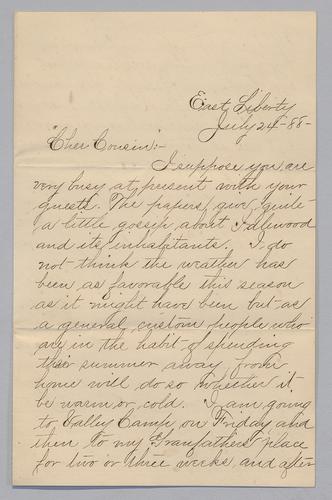 East Liberty
July 24 - 88 -
"Cher Cousin":-
I suppose you are
very busy at present with your
guests. The papers give quite
a little gossip about Idlewood
and its inhabitants. I do
not think the weather has
been as favorable this season
as it might have been but as
a general custom people who
are in the habit of spending
their summer away from
home will do so whether it
be warm or cold. I am going
to Valley Camp on Friday and
then to my Granfathers place
for two or three weeks and after